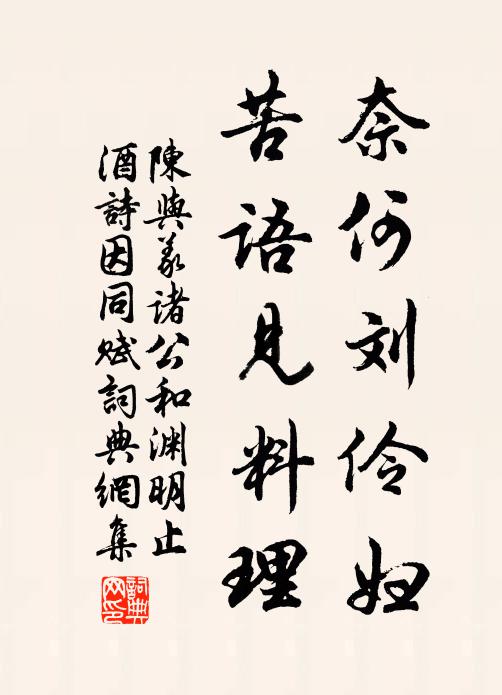 奈何刘伶妇
苦語見料理
陳與義諸公和淵明止
酒詩因同賦詞典網集
詞典網印